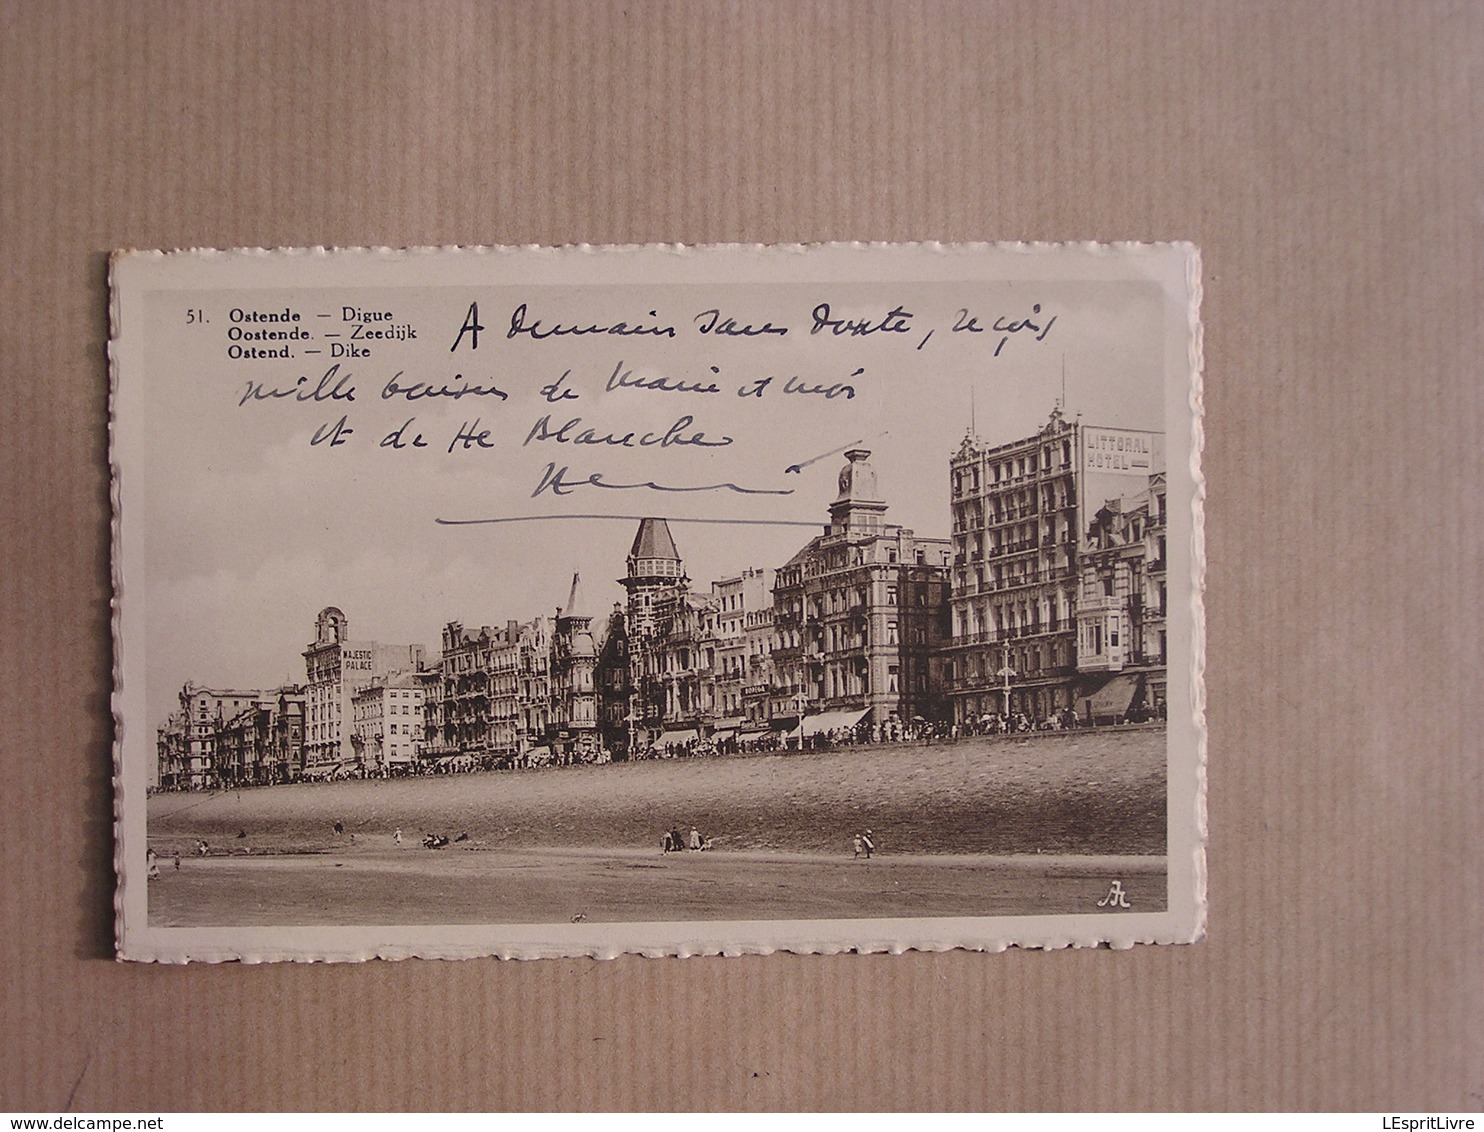 51. Ostende — Digue
Oostende. — Zeedijk
Ostend. — Dike
A demain sans doute, reçois
mille baisers de Marie et moi
et de Blanche
Henri
LITTORAL
HOTEL
MAJESTIC
PALACE
www.delcampe.net
LEspritLivre